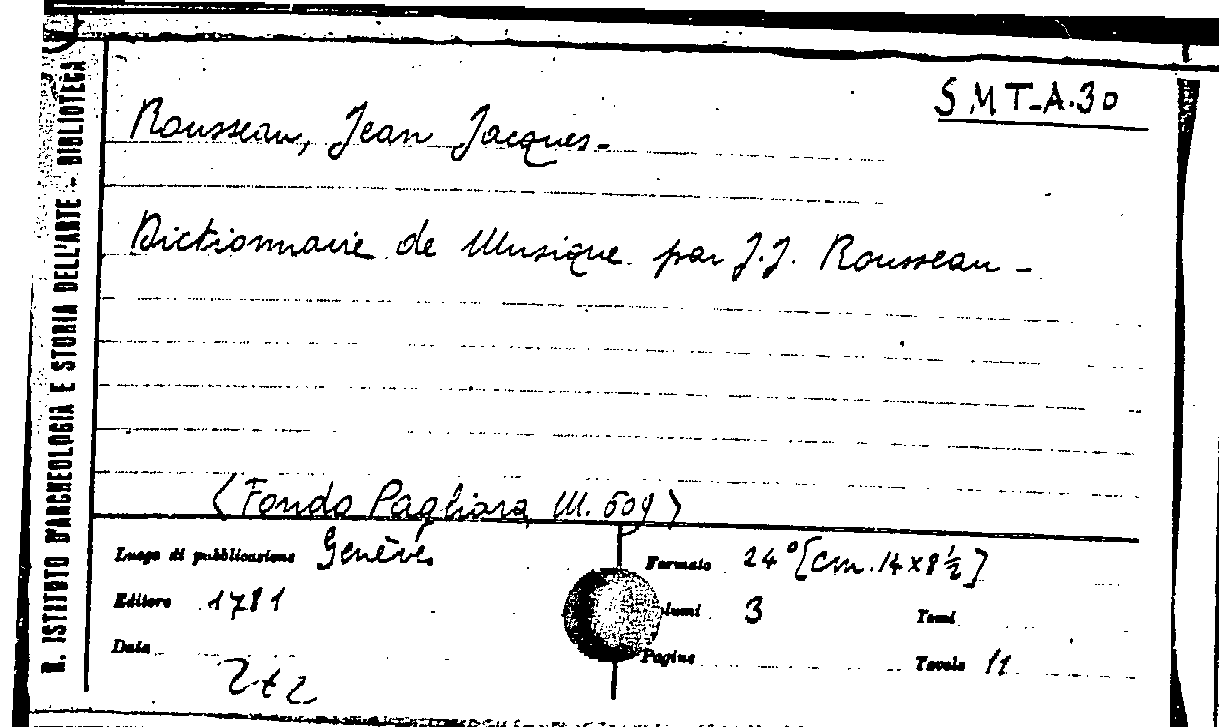 R. ISTITUTO D'ARCHEOLOGIA E STORIA DELL'ARTE - BIBLIOTECA
SMT-A.30
Rousseau, Jean Jacques-
Dictionnaire de Musique par J.J. Rousseau-
(Fondo Pagliara, M. 609)
Luogo di pubblicazione Genève
Formato 24° [cm. 14 x 8 ½]
Editore 1781
lumi 3 Tomi
Data
Pagine Tavole 11